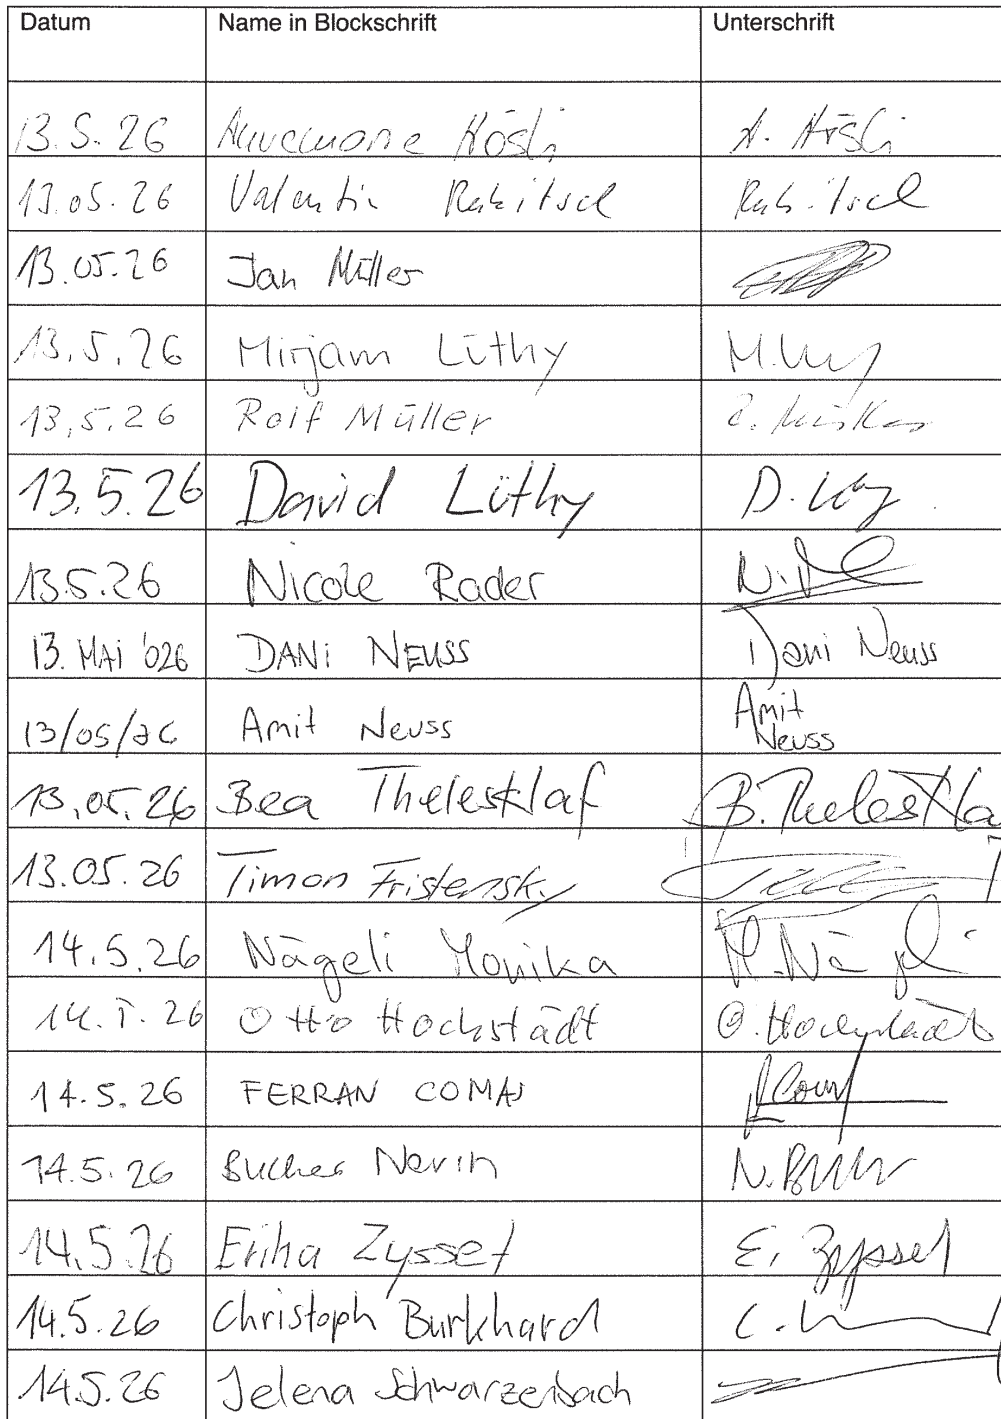 Datum Name in Blockschrift Unterschrift
13.5.26 Annemone Hösli A. Hösli
13.05.26 Valentin Rabitsch Rabitsch
13.05.26 Jan Müller
13.5.26 Mirjam Lüthy M.
13.5.26 Rolf Müller R. Müller
13.5.26 David Lüthy D.
13.5.26 Nicole Rader N.
13. MAI '026 DANI NEUSS Dani Neuss
13/05/26 Amit Neuss Amit
Neuss
13.05.26 Bea Thelesklaf B. Thelesklaf
13.05.26 Timon Fristensky
14.5.26 Nägeli Monika M. Nägeli
14.5.26 Otto Hochstädt O. Hochstädt
14.5.26 FERRAN COMAS
14.5.26 Bucher Nevin N.
14.5.26 Erika Zysset E. Zysset
14.5.26 Christoph Burkhard C.
14.5.26 Jelena Schwarzenbach